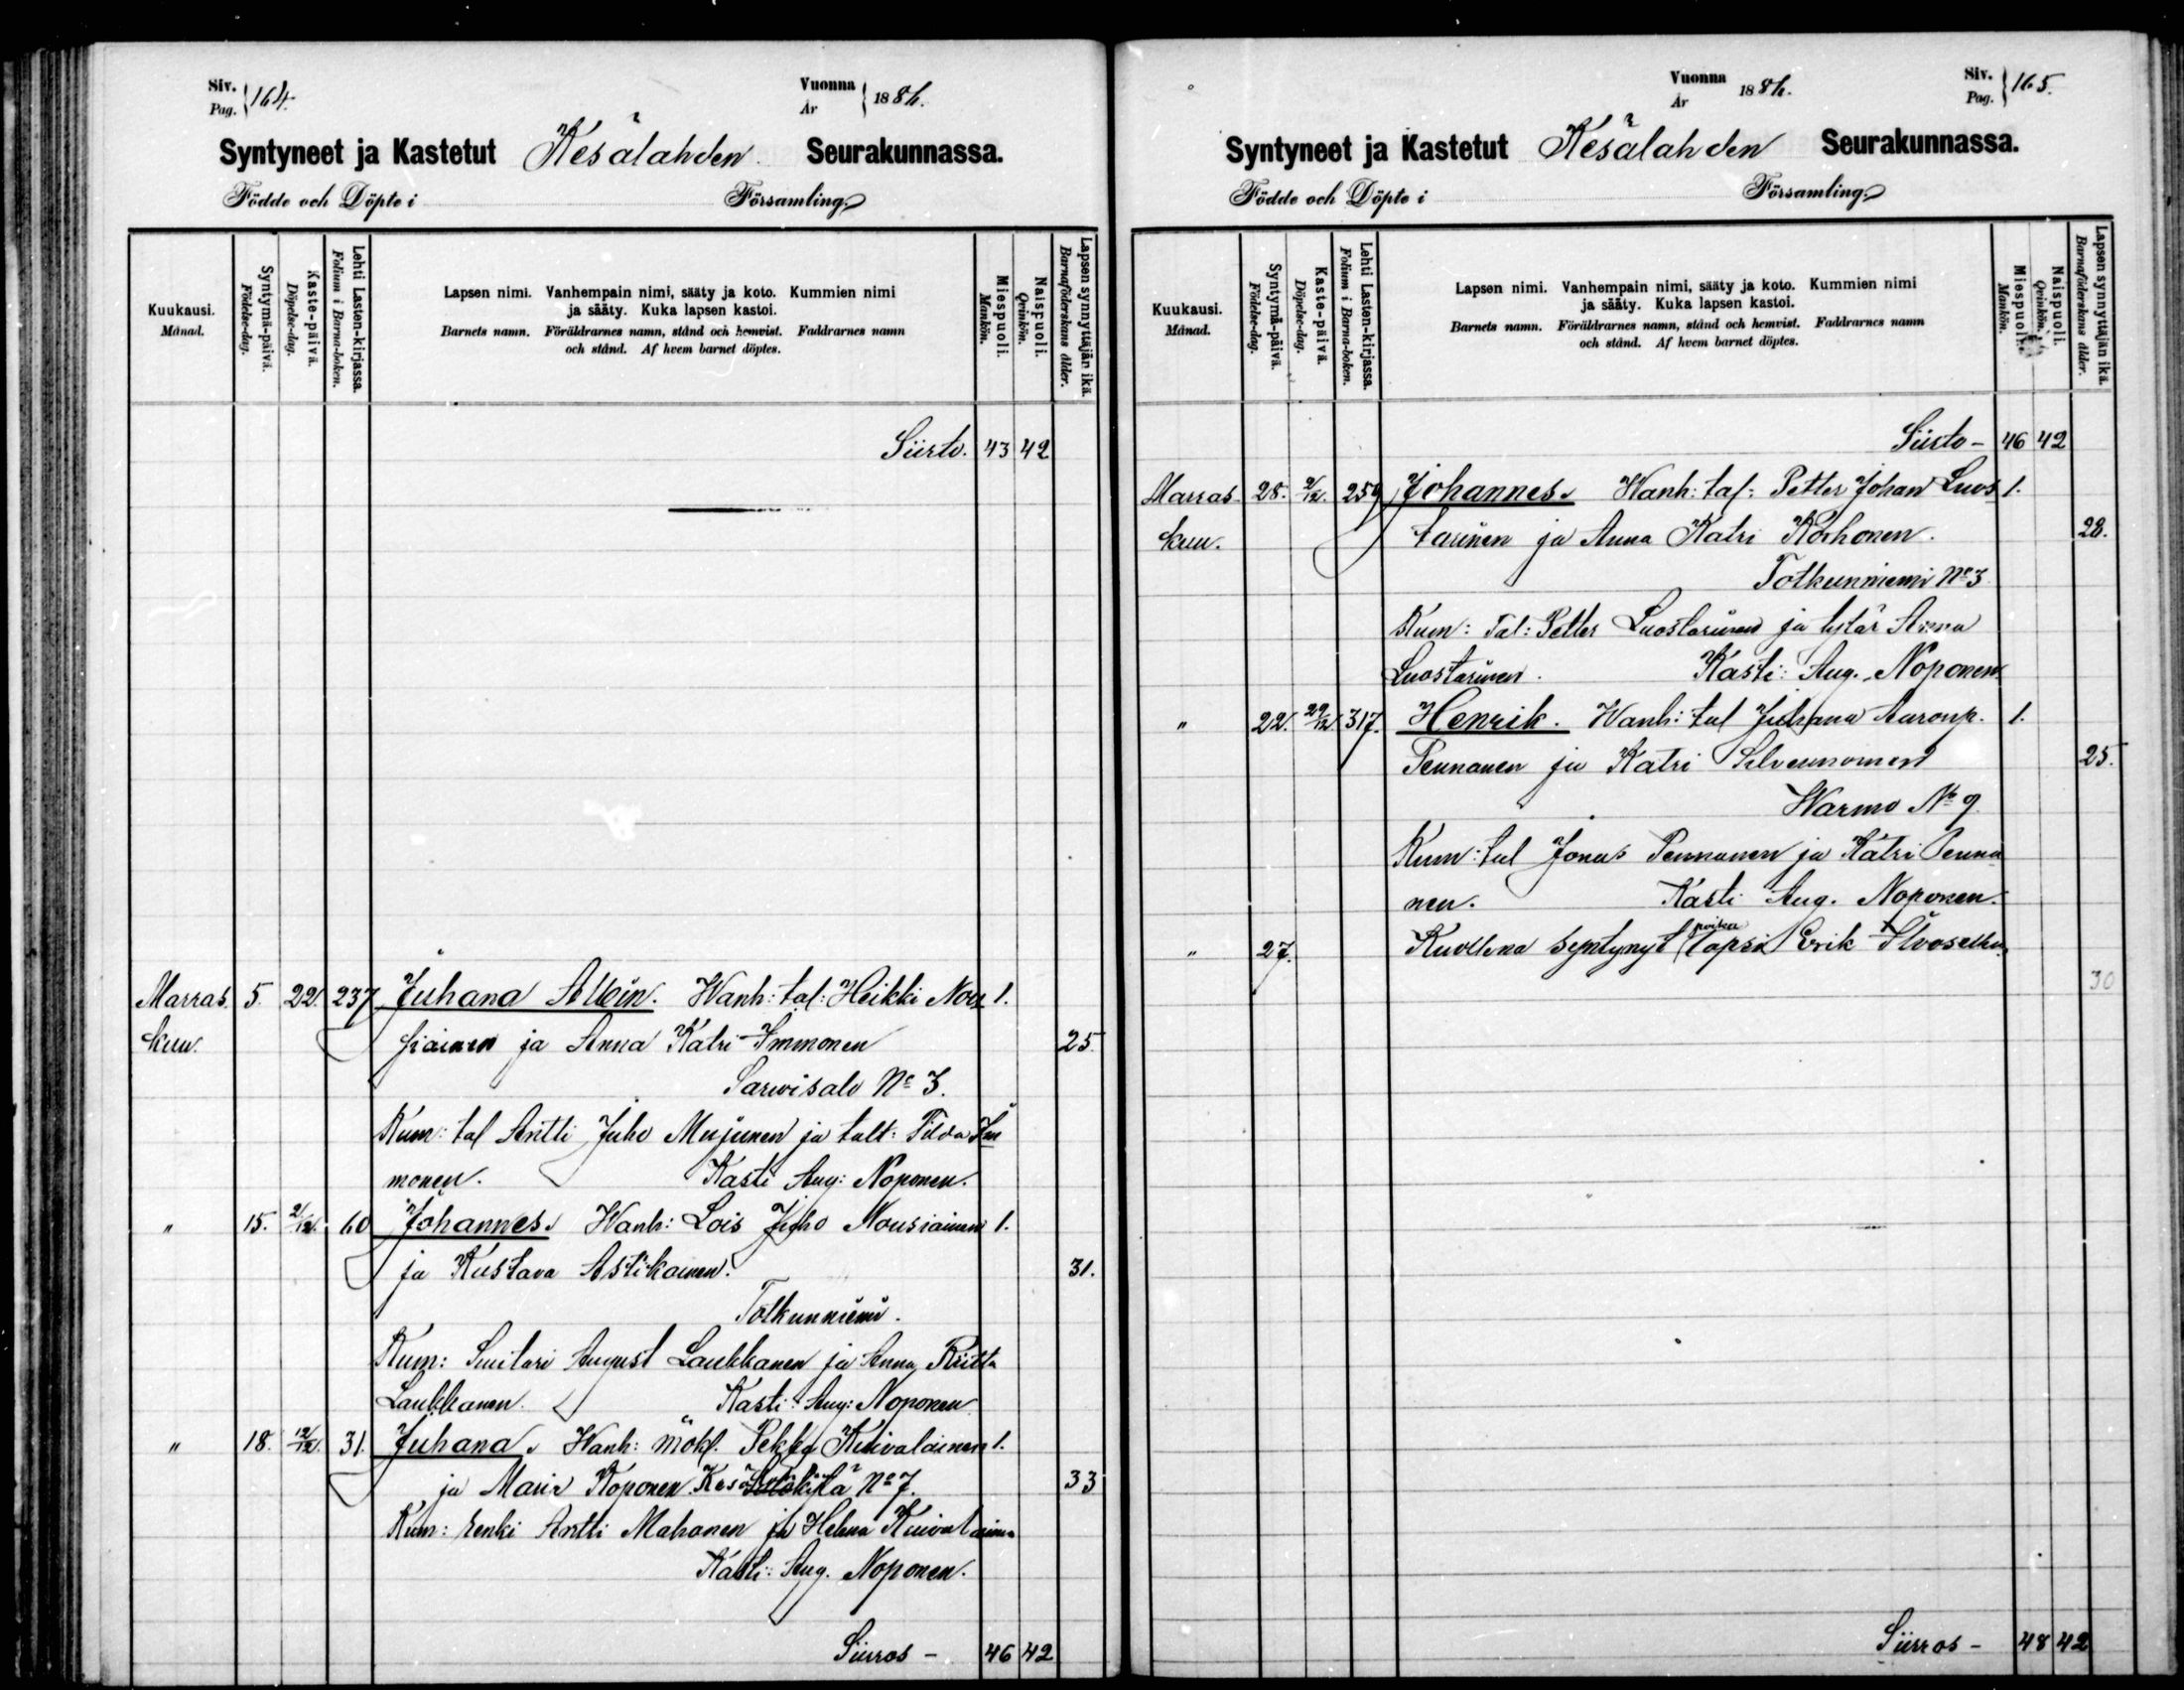 Siv. Pag. 164. Vuonna År 1886.
Syntyneet ja Kastetut Kesälahden Seurakunnassa.
Födde och Döpte i Församling.
Kuukausi. Månad.
Syntymä-päivä. Födelse-dag.
Kaste-päivä. Döpelse-dag.
Lehti Lasten-kirjassa. Folium i Barna-boken.
Lapsen nimi. Vanhempain nimi, sääty ja koto. Kummien nimi
ja sääty. Kuka lapsen kastoi.
Barnets namn. Föräldrarnes namn, stånd och hemvist. Faddrarnes namn
och stånd. Af hvem barnet döptes.
Miespuoli. Mankön.
Naispuoli. Qvinkön.
Lapsen synnyttäjän ikä. Barnaföderskans ålder.
Siirto. 43 42
Marras 5. 22. 237 Juhana Albin. Wanh: tal: Heikki Nou 1.
kuu. siainen ja Anna Katri Immonen 25.
Sarvisalo No 3.
Kum: tal Antti Juho Mujunen ja talt: Tilda Im
monen. Kasti Aug: Noponen.
" 15. 2/12. 60 Johannes. Wanh: Lois Juho Nousiainen 1.
ja Kustava Astikainen. 31.
Totkunniemi.
Kum: Suutari August Laukkanen ja Anna Riitta
Laukkanen. Kasti: Aug: Noponen
" 18. 12/12. 31. Juhana. Wanh: mökl. Pekka Kuivalainen 1.
ja Maria Koponen. No 7. 33
Kum: renki Antti Mahonen ja Helena Kuivalainen
Kasti: Aug. Noponen.
Siirros - 46 42
Vuonna År 1886. Siv. Pag. 165.
Syntyneet ja Kastetut Kesälahden Seurakunnassa.
Födde och Döpte i Församling.
Kuukausi. Månad.
Syntymä-päivä. Födelse-dag.
Kaste-päivä. Döpelse-dag.
Lehti Lasten-kirjassa. Folium i Barna-boken.
Lapsen nimi. Vanhempain nimi, sääty ja koto. Kummien nimi
ja sääty. Kuka lapsen kastoi.
Barnets namn. Föräldrarnes namn, stånd och hemvist. Faddrarnes namn
och stånd. Af hvem barnet döptes.
Miespuoli. Mankön.
Naispuoli. Qvinkön.
Lapsen synnyttäjän ikä. Barnaföderskans ålder.
Siirto - 46 42
Marras 28. 2/12. 259 Johannes. Wanh: tal: Petter Johan Luos 1.
kuu. tarinen ja Anna Katri Korhonen. 28.
Totkunniemi No 3
Kum: Tal: Petter Luostarinen ja tytär Anna
Luostarinen. Kasti: Aug. Noponen
" 22. 29/12 317. Henrik. Wanh: tal Juhana Aaronp. 1.
Pennanen ja Katri Silvennoinen 25.
Warmo No 9
Kum: tal Jonas Pennanen ja Katri Penna
nen. Kasti Aug. Noponen.
" 27. Kuollena syntynyt poika lapsi Erik
30
Siirros - 48 42